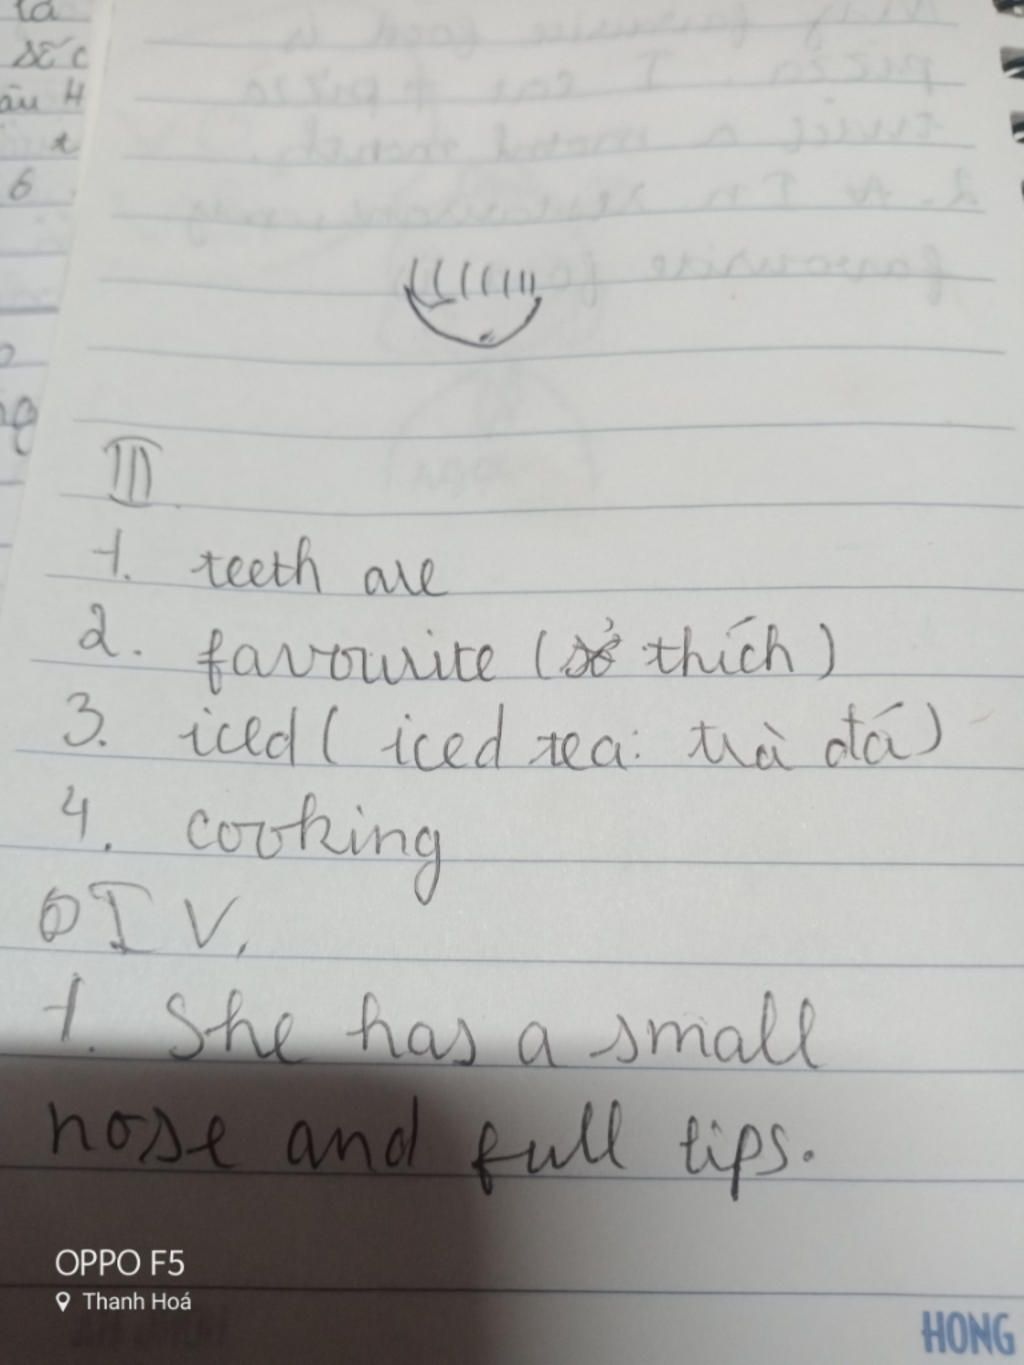 tả
sếc
âu H
6
III
1. teeth are
2. favourite (sở thích)
3. iced ( iced tea: trà đá)
4. cooking
IV.
1. She has a small
nose and full lips.
OPPO F5
Thanh Hoá
HONG